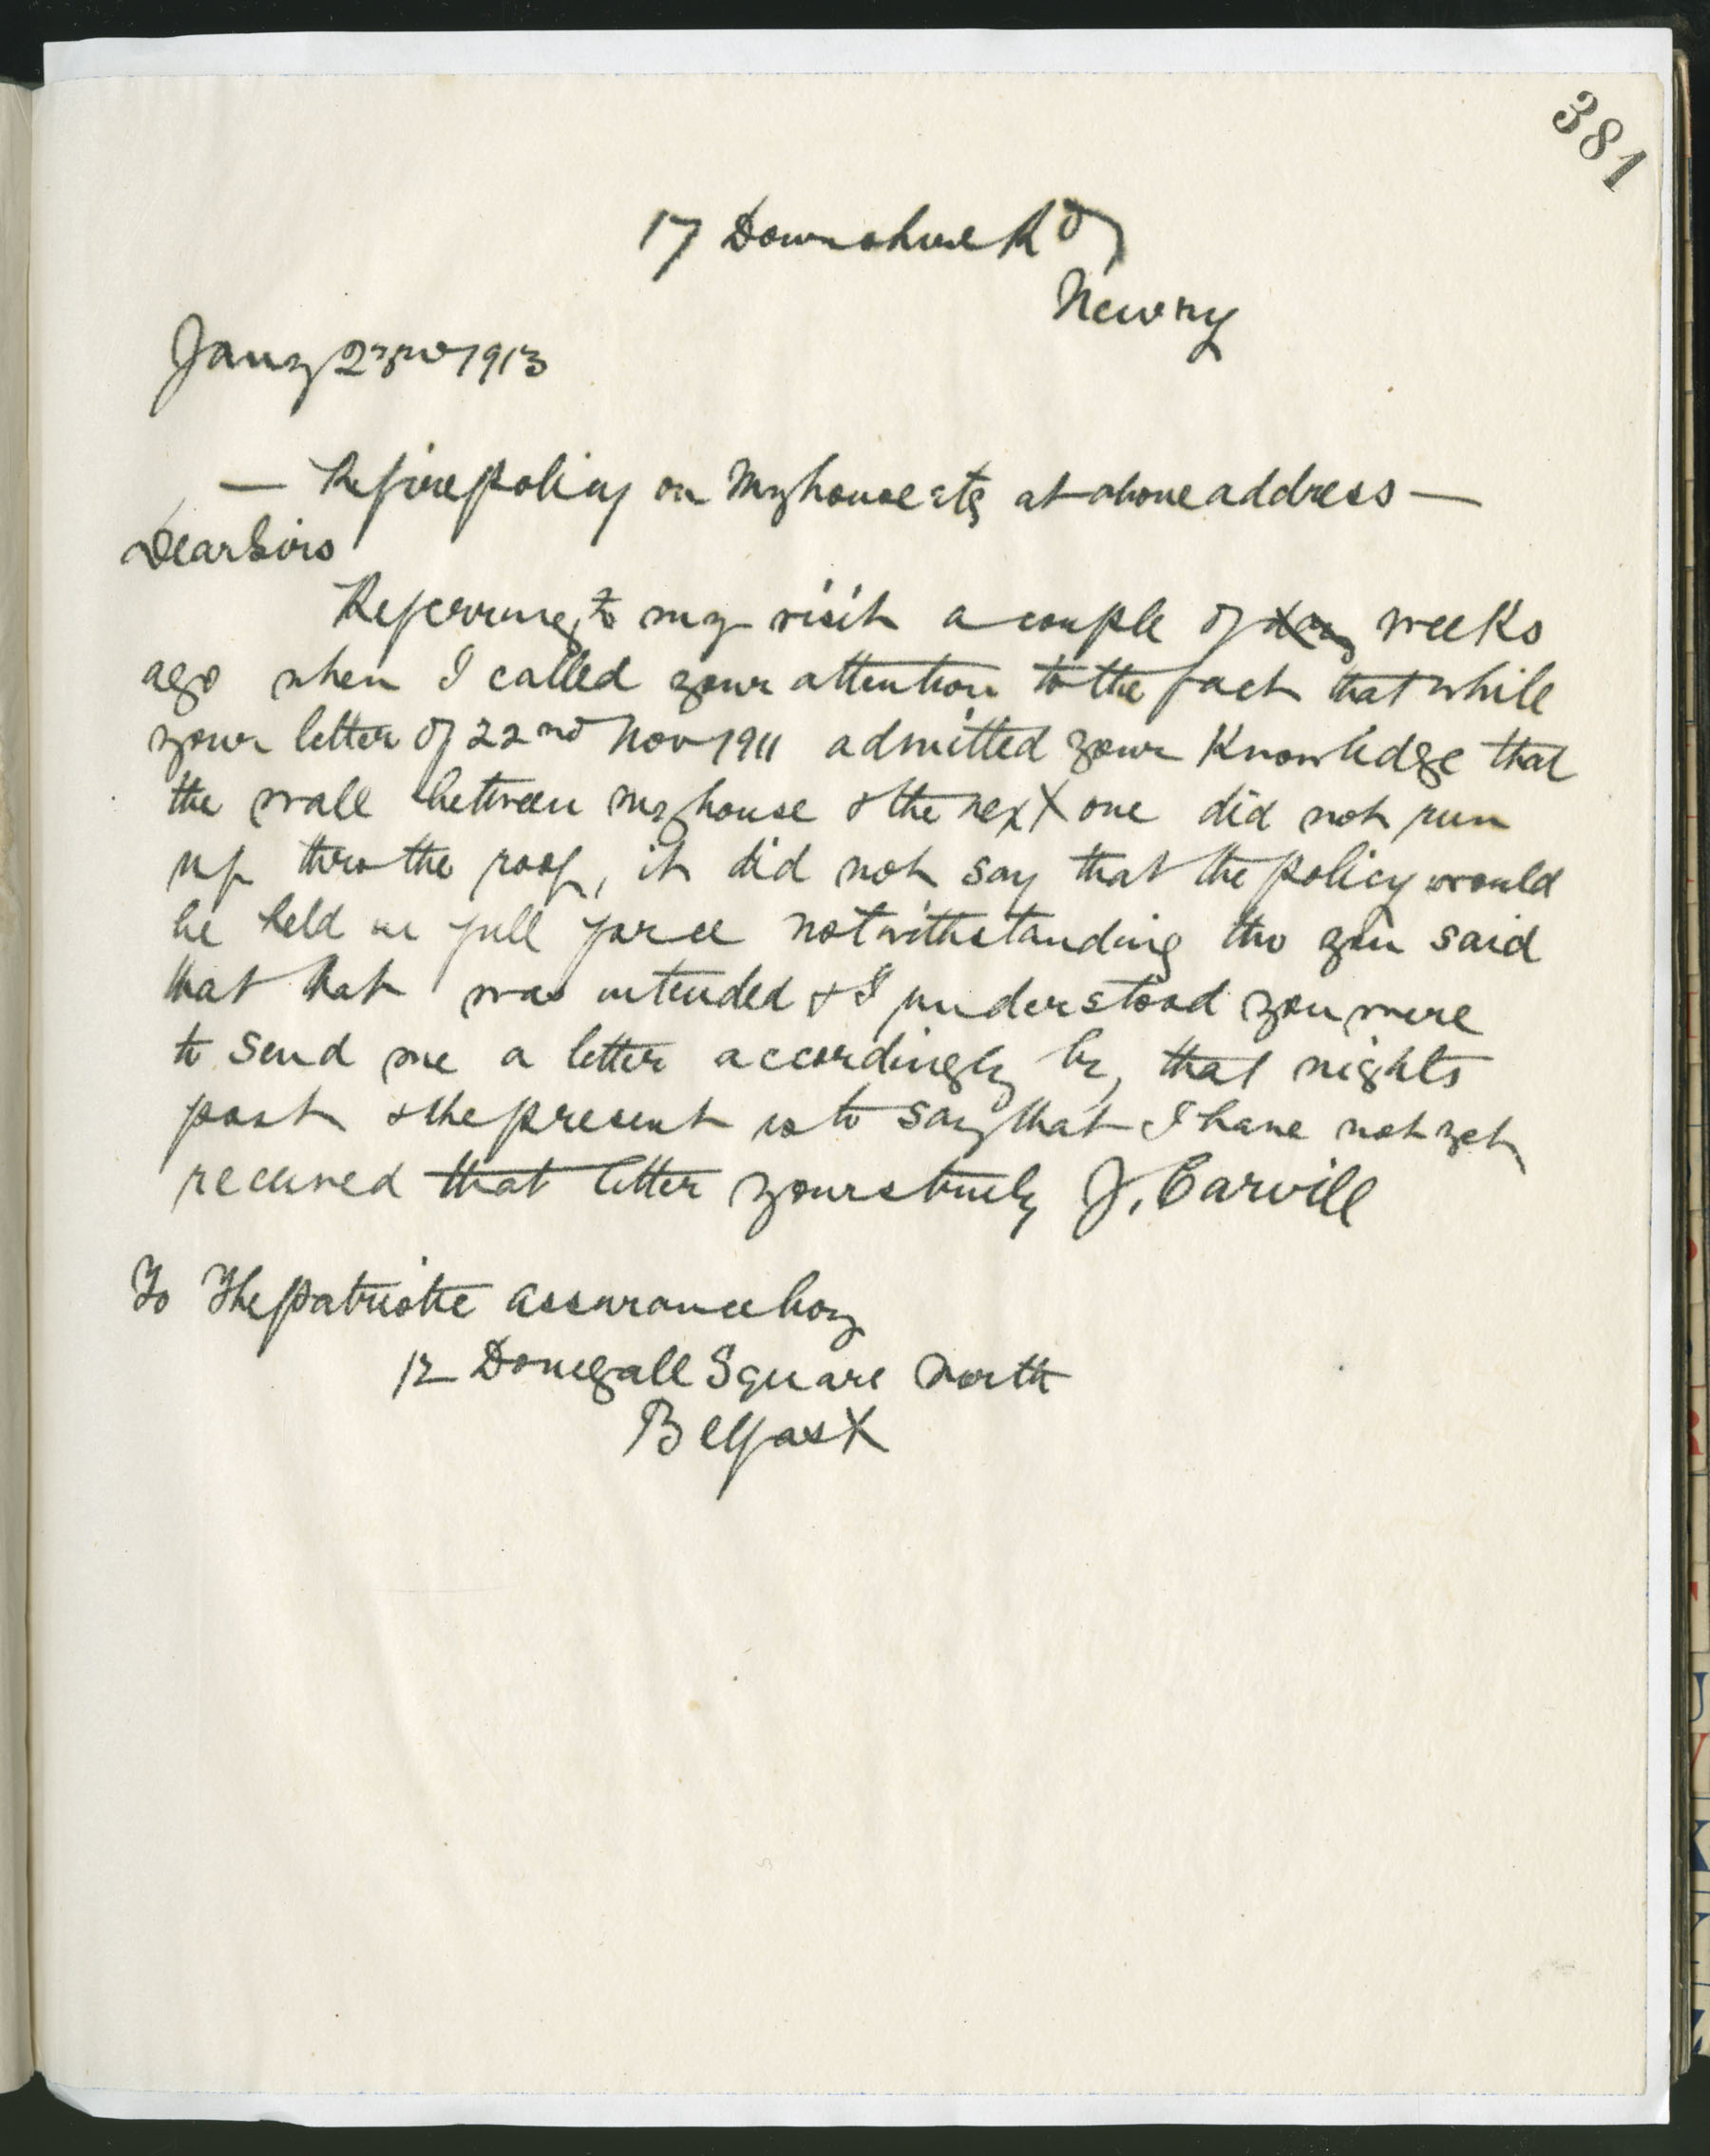 381
17 Downshire Rd
Newry
Jany 23rd 1913
— Re fire policy on My house etc at above address —
Dear Sirs
Referring to my visit a couple of days weeks
ago when I called your attention to the fact that while
your letter of 22nd Nov 1911 admitted your Knowledge that
the wall between my house & the next one did not run
up thro the roof, it did not say that the policy would
be held in full force notwithstanding tho you said
that that was intended & I understood you were
to send me a letter accordingly by that nights
post & the present is to say that I have not yet
received that letter yours truly J. Carvill
To The patriotic assurance Coy
12 Donegall Square North
Belfast